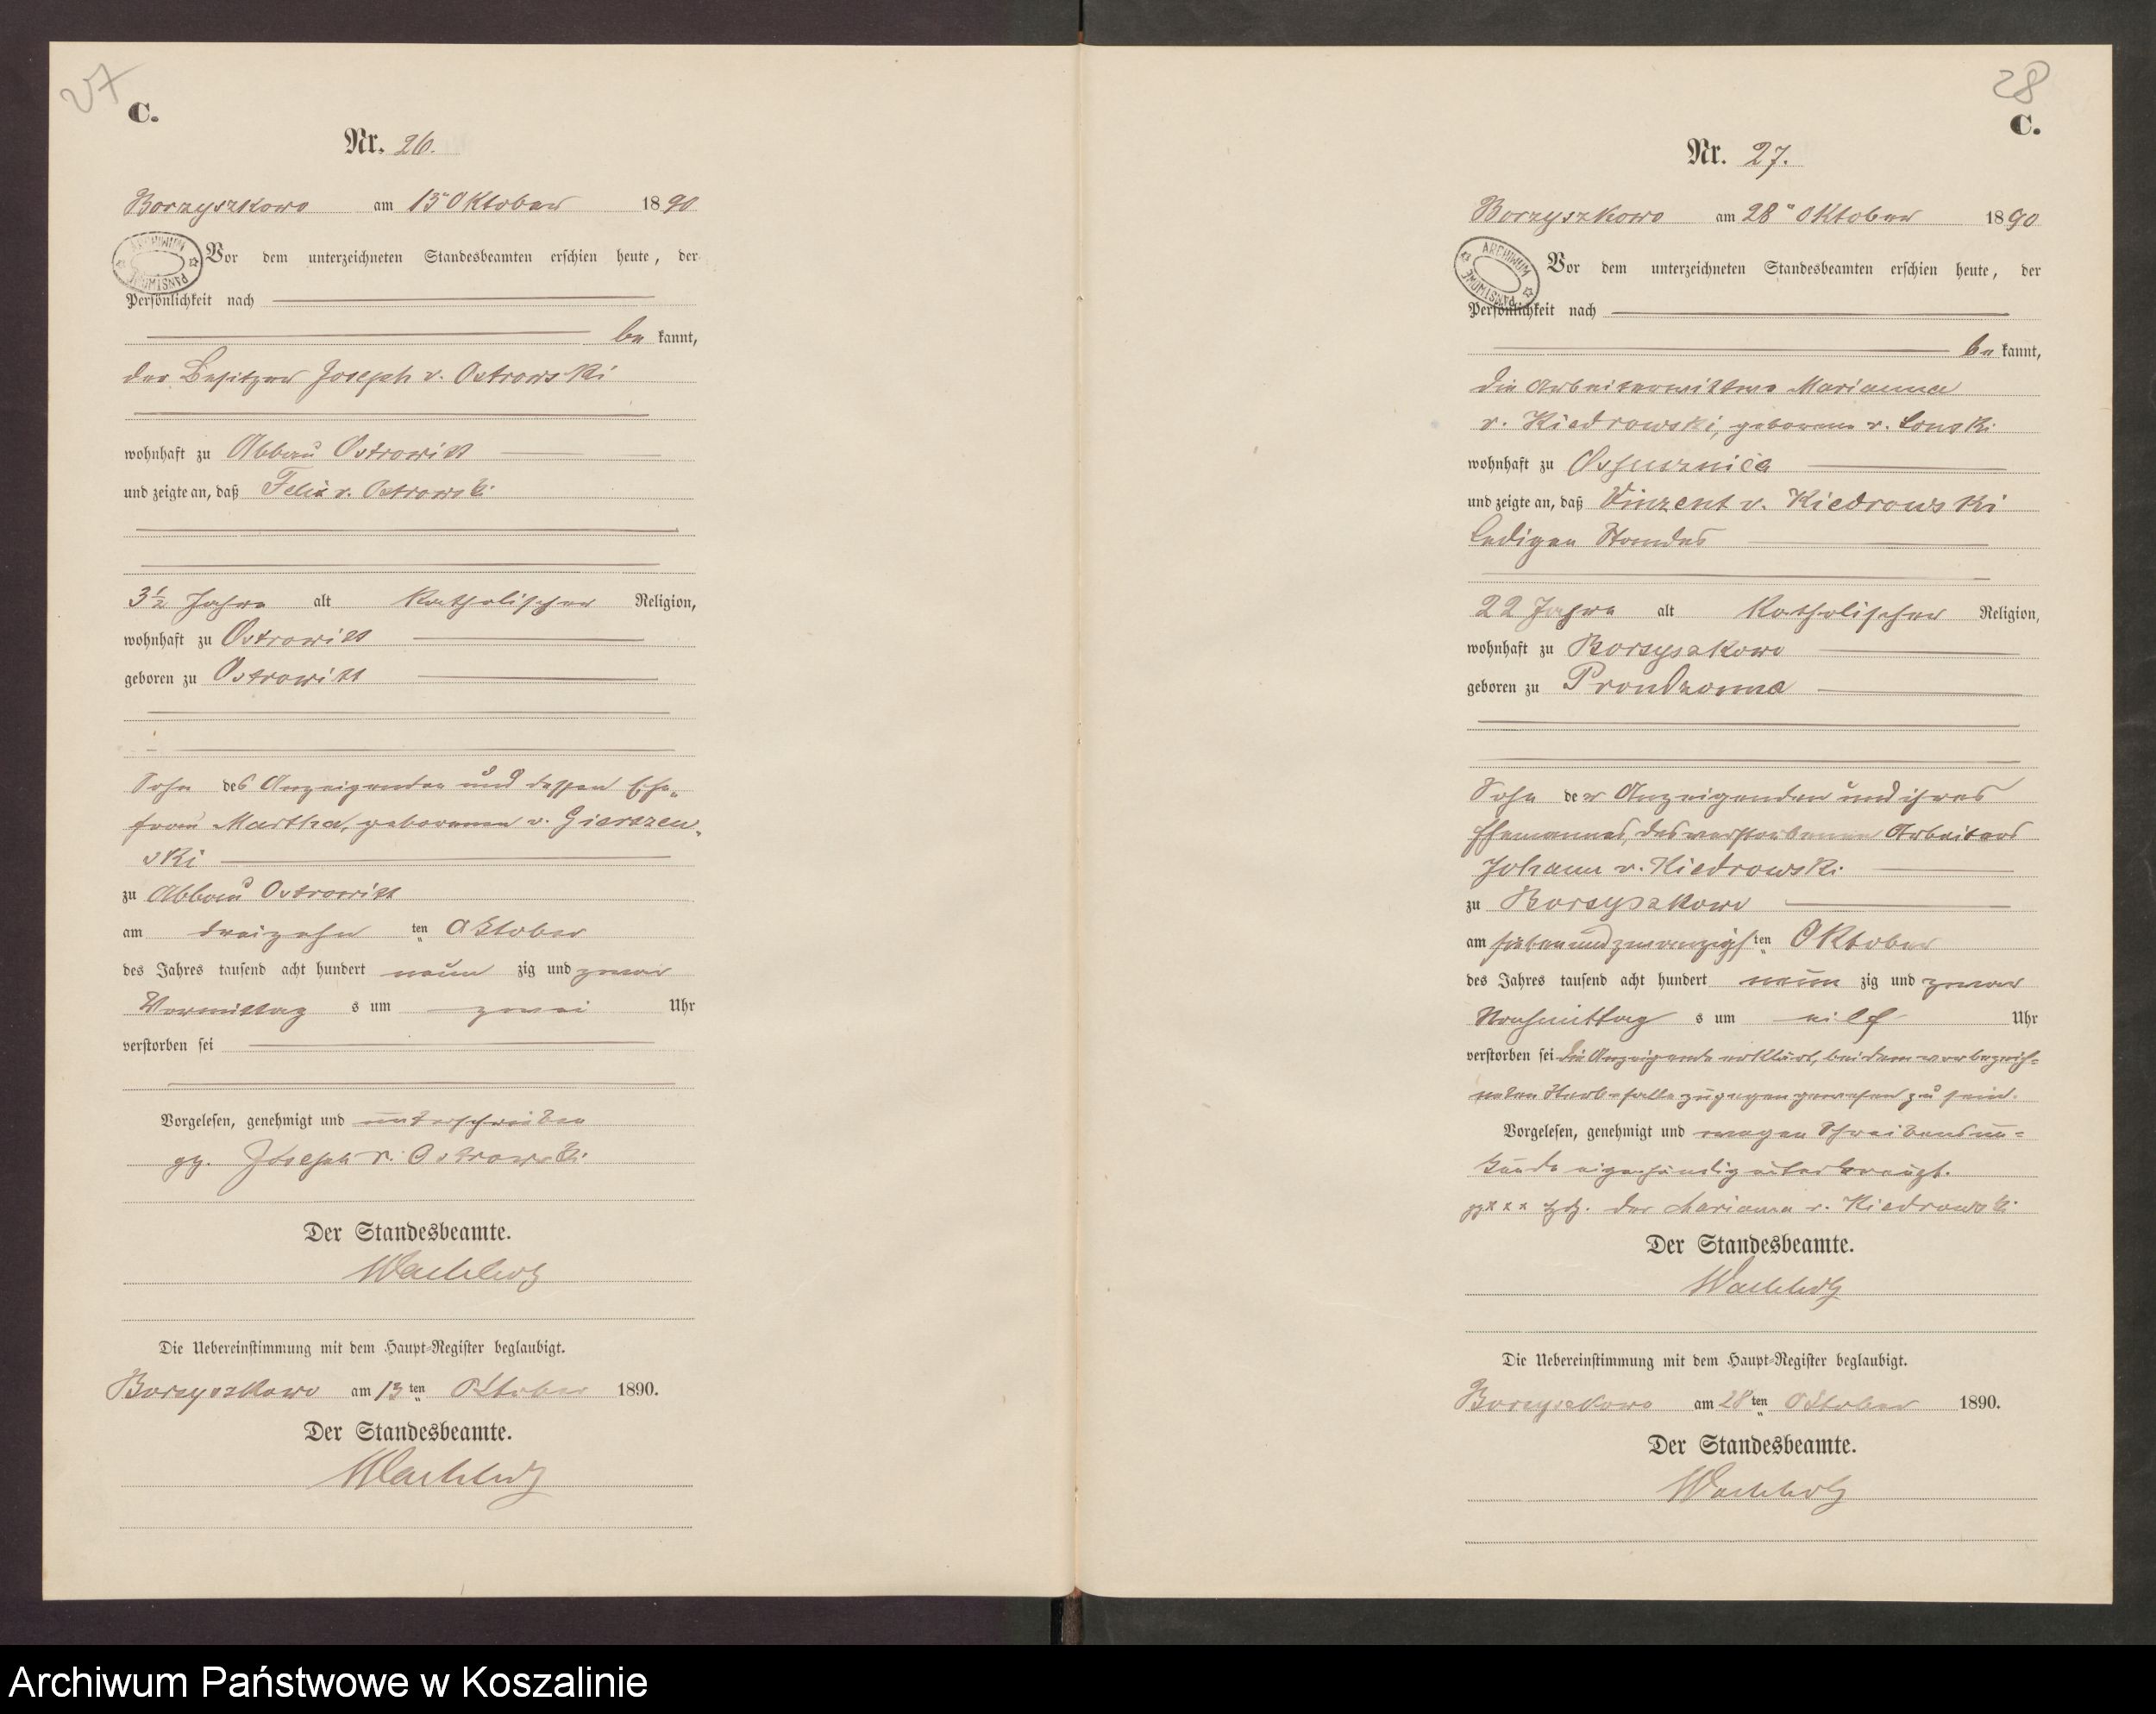 27
C.
Nr. 26.
Borzyszkowo am 13" Oktober 1890
ARCHIWUM PAŃSTWOWE
Vor dem unterzeichneten Standesbeamten erschien heute, der
Persönlichkeit nach
be kannt,
der Besitzer Joseph v. Ostrowski
wohnhaft zu Abbau Ostrowitt
und zeigte an, daß Felix v. Ostrowski
3½ Jahre alt katholischer Religion,
wohnhaft zu Ostrowitt
geboren zu Ostrowitt
Sohn des Anzeigenden und dessen Ehe„
frau Martha, geborenen v. Gierszew„
ski
zu Abbau Ostrowitt
am dreizehn ten Oktober
des Jahres tausend acht hundert neun zig und zwar
Vormittag s um zwei Uhr
verstorben sei
Vorgelesen, genehmigt und unterschrieben
gz. Joseph v. Ostrowski
Der Standesbeamte.
Wachholz
Die Uebereinstimmung mit dem Haupt-Register beglaubigt.
Borzyszkowo am 13 ten Oktober 1890.
Der Standesbeamte.
Wachholz
28
C.
Nr. 27.
Borzyszkowo am 28" Oktober 1890
ARCHIWUM PAŃSTWOWE
Vor dem unterzeichneten Standesbeamten erschien heute, der
Persönlichkeit nach
be kannt,
die Arbeiterwittwe Marianna
v. Kiedrowski, geborene v. Lonski
wohnhaft zu Ossusznica
und zeigte an, daß Vinzent v. Kiedrowski
ledigen Standes
22 Jahre alt katholischer Religion,
wohnhaft zu Borzyszkowo
geboren zu Prondzonna
Sohn der Anzeigenden und ihres
Ehemannes, des verstorbenen Arbeiters
Johann v. Kiedrowski
zu Borzyszkowo
am siebenundzwanzigs ten Oktober
des Jahres tausend acht hundert neun zig und zwar
Nachmittag s um eilf Uhr
verstorben sei die Anzeigende erklärt, bei dem vorbezeich=
neten Sterbefalle zugegen gewesen zu sein.
Vorgelesen, genehmigt und wegen Schreibensun=
kunde eigenhändig unterkreuzt.
gz x x x Hdz. der Marianna v. Kiedrowski
Der Standesbeamte.
Wachholz
Die Uebereinstimmung mit dem Haupt-Register beglaubigt.
Borzyszkowo am 28 ten Oktober 1890.
Der Standesbeamte.
Wachholz
Archiwum Państwowe w Koszalinie